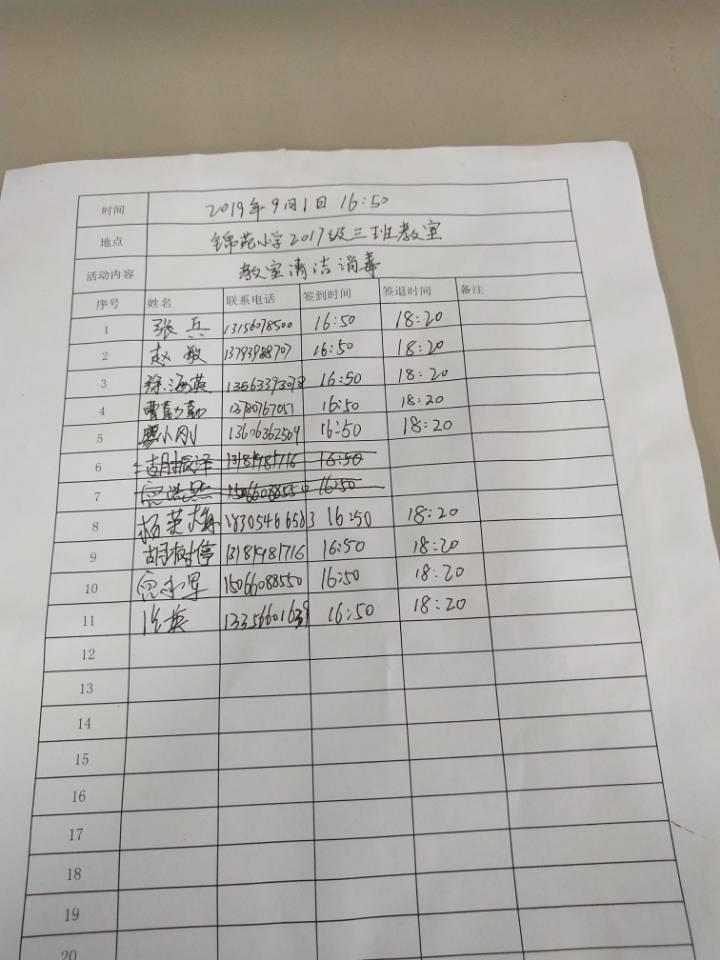 时间 2019年9月1日 16:50
地点 锦苑小学2017级三班教室
活动内容 教室清洁消毒
序号 姓名 联系电话 签到时间 签退时间 备注
1 张兵 13156078500 16:50 18:20
2 赵敏 13793988707 16:50 18:20
3 徐海英 13563397078 16:50 18:20
4 曹勤勤 16:50 18:20
5 廖小刚 13606362509 16:50 18:20
6 胡振泽 13181981716 16:50
7 15066088550 16:50
8 杨荣梅 18305466563 16:50 18:20
9 胡树停 13181981716 16:50 18:20
10 15066088550 16:50 18:20
11 13356601639 16:50 18:20
12
13
14
15
16
17
18
19
20